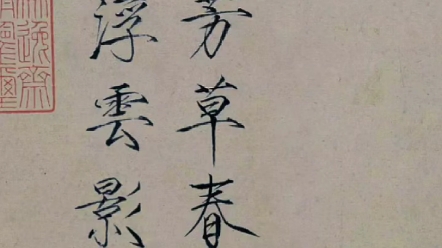 芳草春
浮雲影